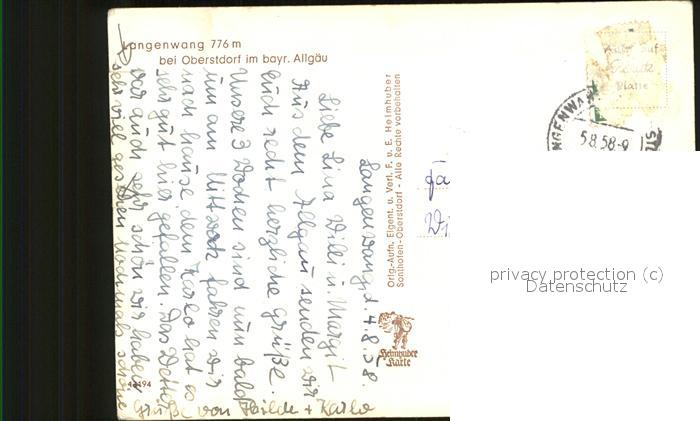 Langenwang 776 m
bei Oberstdorf im bayr. Allgäu
Langenwang d. 4.8.58.
Liebe Lina Willi u. Margit
Aus dem Allgäu senden wir
Euch recht herzliche Grüße.
Unsere 3 Wochen sind nun bald
um am Mittwoch fahren wir
nach hause dem Karlo hat es
sehr gut hier gefallen. Das Wetter
war auch sehr schön wir haben
sehr viel gesehen nochmals schöne
Grüße von Hilde + Karlo
Orig.-Aufn. Eigent. u. Verl. F. u. E. Heimhuber
Sonthofen-Oberstdorf - Alle Rechte vorbehalten
Heimhuber
Karte
auf
Platte
5.8.58-9
privacy protection (c)
Datenschutz